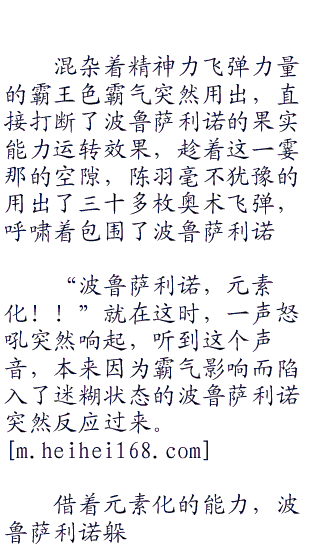 混杂着精神力飞弹力量
的霸王色霸气突然用出，直
接打断了波鲁萨利诺的果实
能力运转效果，趁着这一霎
那的空隙，陈羽毫不犹豫的
用出了三十多枚奥术飞弹，
呼啸着包围了波鲁萨利诺
“波鲁萨利诺，元素
化！！”就在这时，一声怒
吼突然响起，听到这个声
音，本来因为霸气影响而陷
入了迷糊状态的波鲁萨利诺
突然反应过来。
[m.heihei168.com]
借着元素化的能力，波
鲁萨利诺躲